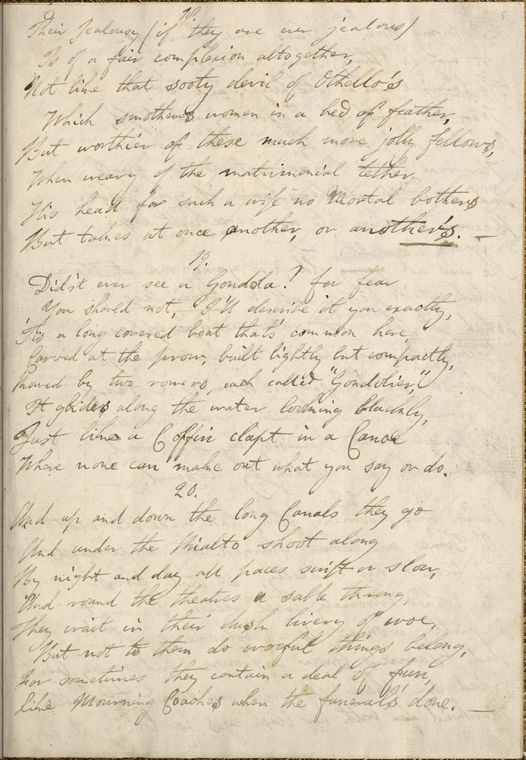 18.
Their Jealousy (if they are ever jealous)
Is of a fair complexion altogether,
Not like that sooty devil of Othello's
Which smothers women in a bed of feather,
But worthier of these much more jolly fellows,
When weary of the matrimonial tether
His head for such a wife no Mortal bothers
But takes at once another, or another's. —
19.
Didst ever see a Gondola? for fear
You should not, I'll describe it you exactly,
'Tis a long covered boat that's common here
Carved at the prow, built lightly but compactly,
Rowed by two rowers, each called "Gondolier,"
It glides along the water looking blackly,
Just like a Coffin clapt in a Canoe
Where none can make out what you say or do.
20.
And up and down the long Canals they go
And under the Rialto shoot along
By night and day all paces swift or slow,
And round the theatres a sable throng,
They wait in their dusk livery of woe,
But not to them do woeful things belong,
For sometimes they contain a deal of fun,
Like Mourning Coaches when the funeral's done. —